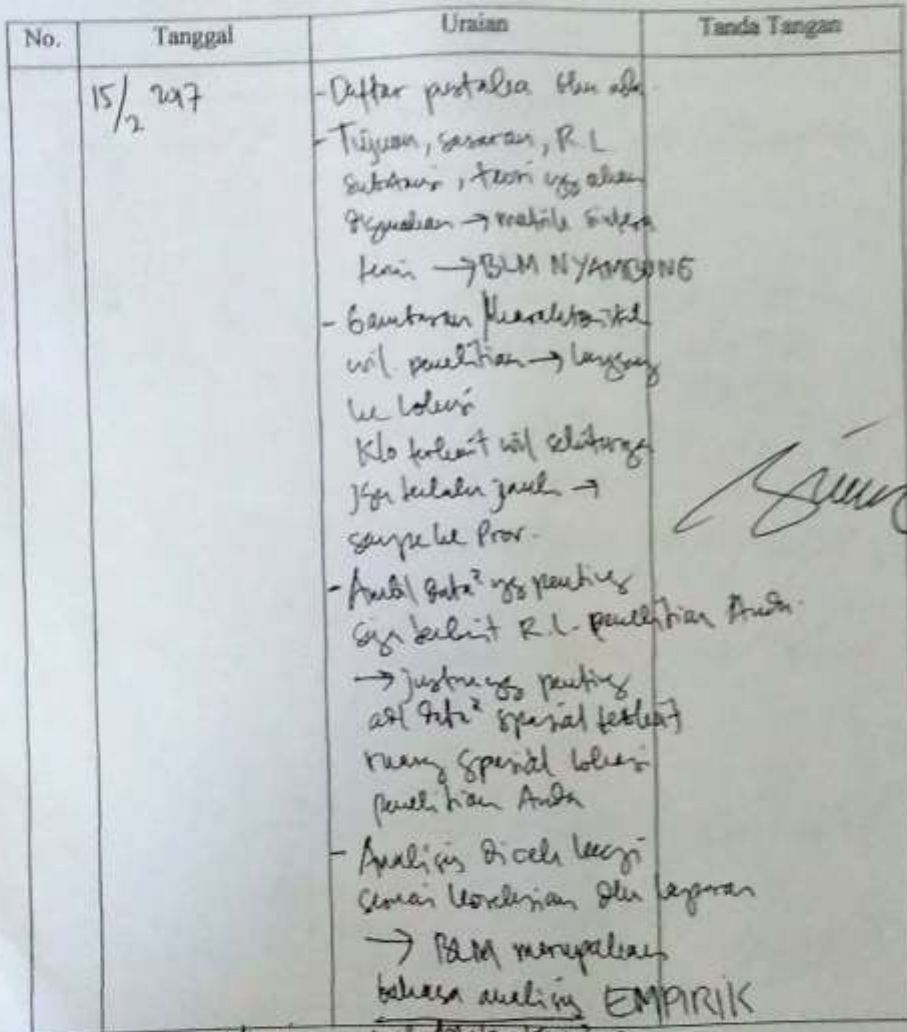 No. Tanggal Uraian Tanda Tangan
15/2 2017 - Daftar pustaka blm ada.
- Tujuan, sasaran, R.L
Substansi, teori yg akan
digunakan → matrik sintesa
teori → BLM NYAMBUNG
- Gambaran Karakteristik
wil. penelitian → langsung
ke lokasi
Klo terkait wil sekitarnya
jgn terlalu jauh →
sampe ke Prov.
- Ambil data² yg penting
terkait R.L. penelitian Anda.
→ justru yg penting
adl data² spasial terkait
ruang spasial lokasi
penelitian Anda
- Analisis dicek lagi
sesuai koreksian dlm laporan
→ BLM merupakan
bahasa analisis EMPIRIK